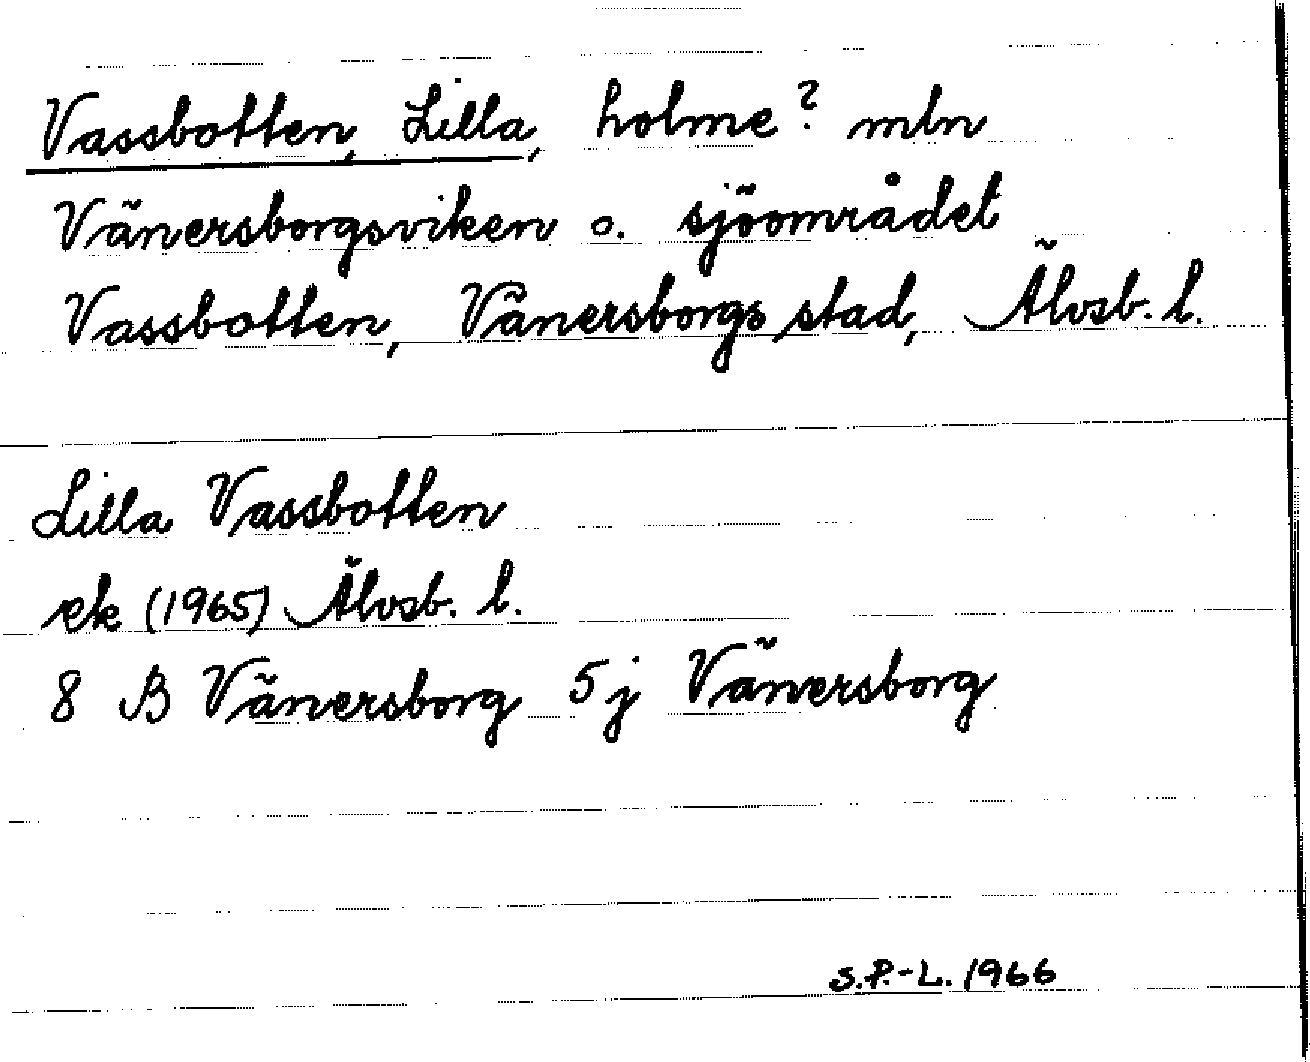 Vassbotten, Lilla, holme? mln
Vänersborgsviken o. sjöområdet
Vassbotten, Vänersborgs stad, Älvsb. l.
Lilla Vassbotten
ek (1965) Älvsb. l.
8 B Vänersborg 5j Vänersborg
S.P.-L. 1966